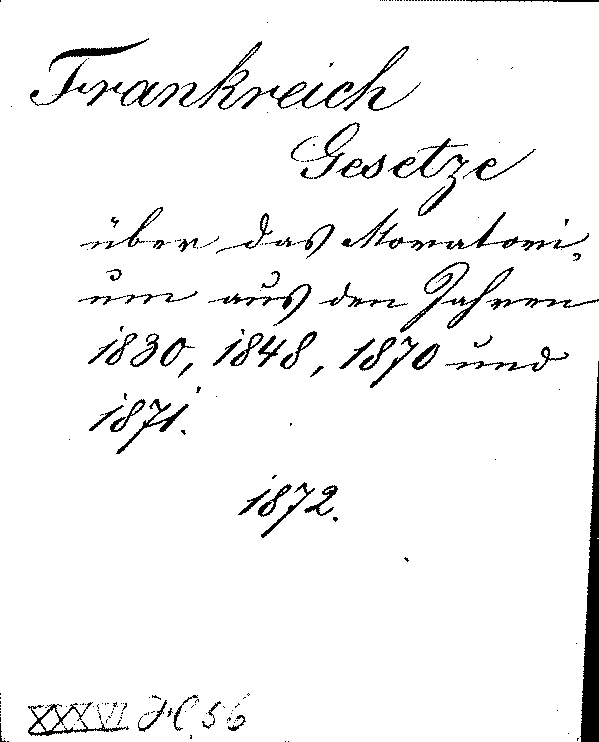 Frankreich
Gesetze
über das Moratori-
um aus den Jahren
1830, 1848, 1870 und
1871.
1872.
XXXVI 56